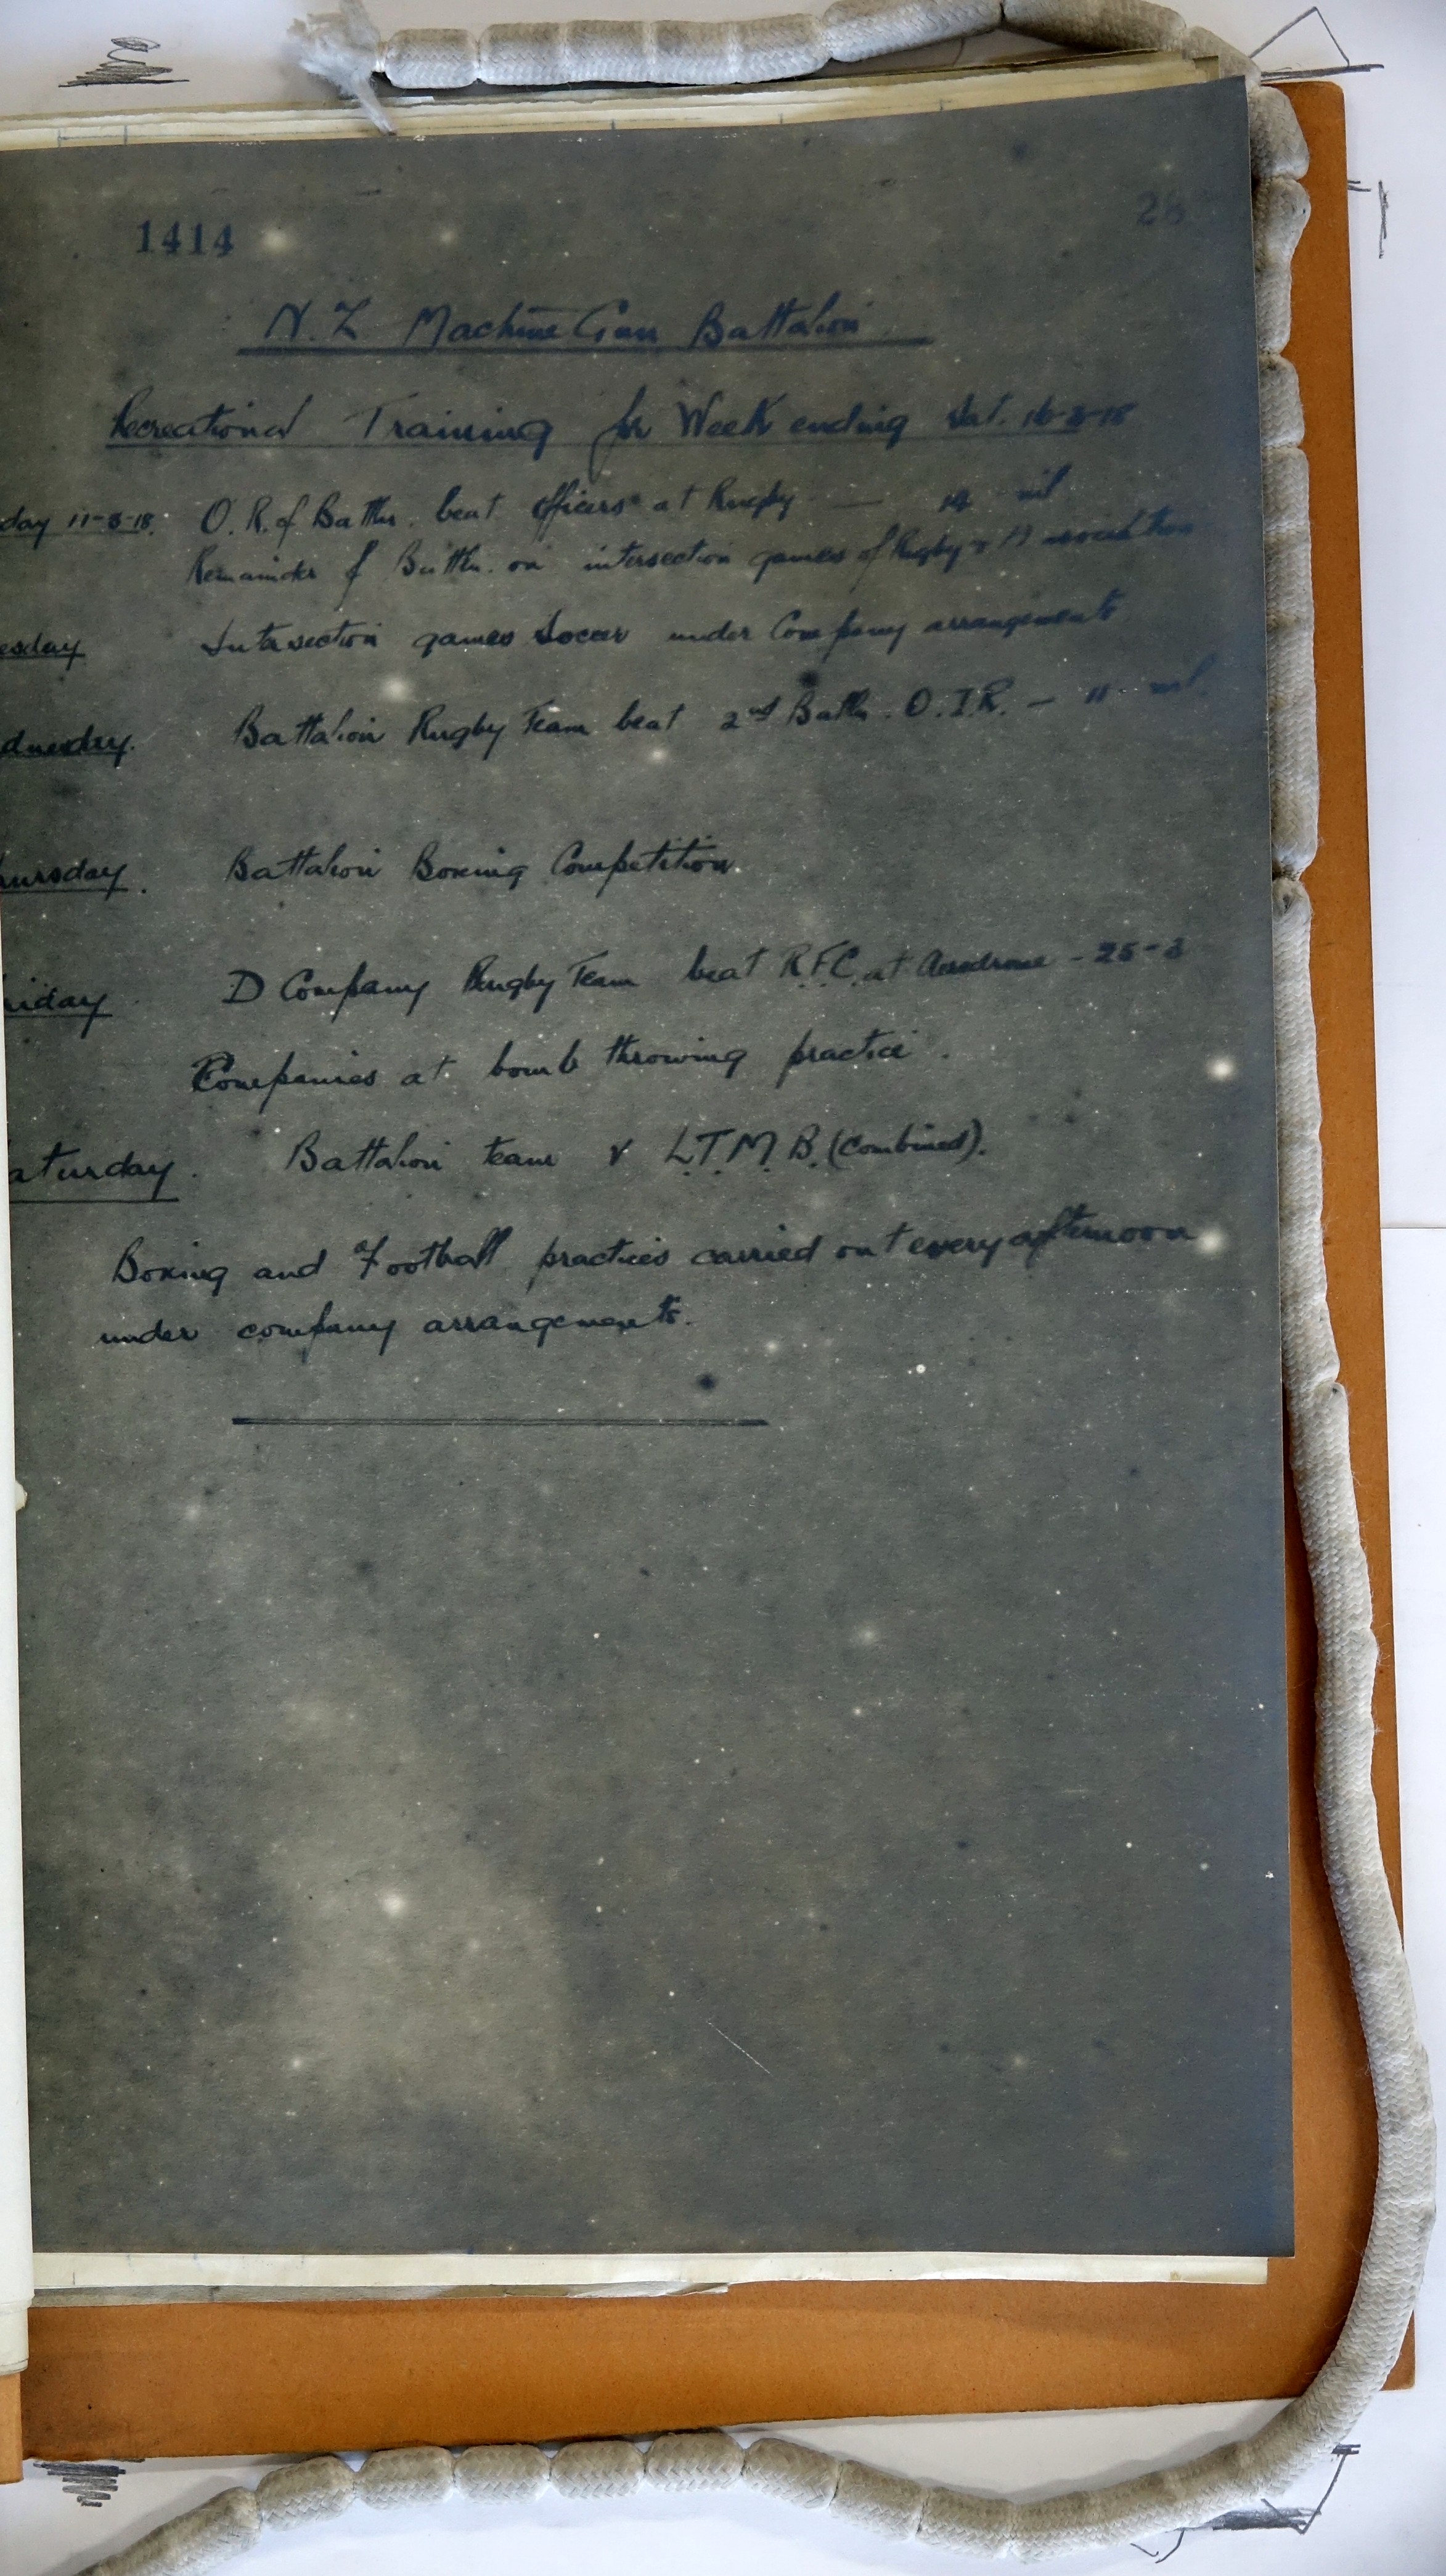 1414
28
N.Z Machine Gun Battalion
Recreational Training for Week ending Sat. 16-3-18
day 11-3-18. O.R. of Battn. beat officers at Rugby — 14 nil
Remainder of Battn. on intersection games of Rugby & Association
esday Intersection games Soccer under Company arrangements
dnesday. Battalion Rugby Team beat 2nd Battn. O.I.R. — 11 nil
hursday. Battalion Boxing Competition.
riday D Company Rugby Team beat R.F.C. at Aerodrome - 25-3
Companies at bomb throwing practice.
aturday. Battalion team v L.T.M.B. (combined).
Boxing and Football practices carried out every afternoon
under company arrangements.